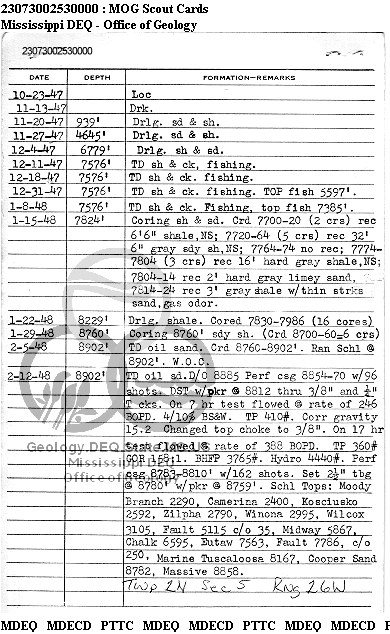 23073002530000 : MOG Scout Cards
Mississippi DEQ - Office of Geology
23073002530000
DATE DEPTH FORMATION—REMARKS
10-23-47 Loc
11-13-47 Drk.
11-20-47 939' Drlg. sd & sh.
11-27-47 4645' Drlg. sd & sh.
12-4-47 6779' Drlg. sh & sd.
12-11-47 7576' TD sh & ck, fishing.
12-18-47 7576' TD sh & ck. fishing.
12-31-47 7576' TD sh & ck. fishing. TOP fish 5597'.
1-8-48 7576' TD sh & ck. Fishing, top fish 7385'.
1-15-48 7824' Coring sh & sd. Crd 7700-20 (2 crs) rec
6'6" shale,NS; 7720-64 (5 crs) rec 32'
6" gray sdy sh,NS; 7764-74 no rec; 7774-
7804 (3 crs) rec 16' hard gray shale,NS;
7804-14 rec 2' hard gray limey sand,
7814-24 rec 3' gray shale w/thin strks
sand,gas odor.
1-22-48 8229' Drlg. shale. Cored 7830-7986 (16 cores)
1-29-48 8760' Coring 8760' sdy sh. (Crd 8700-60,6 crs)
2-5-48 8902' TD oil sand. Crd 8760-8902'. Ran Schl @
8902'. W.O.C.
2-12-48 8902' TD oil sd.D/O 8885 Perf csg 8854-70 w/96
shots. DST w/pkr @ 8812 thru 3/8" and ½"
cks. On 7 hr test flowed @ rate of 246
BOPD. 4/10% BS&W. TP 410#. Corr gravity
15.2 Changed top choke to 3/8". On 17 hr
test flowed @ rate of 388 BOPD. TP 360#
GOR 165:1. BHFP 3765#. Hydro 4440#. Perf
csg 8783-8810' w/162 shots. Set 2½" tbg
@ 8780' w/pkr @ 8759'. Schl Tops: Moody
Branch 2290, Camerina 2400, Kosciusko
2592, Zilpha 2790, Winona 2995, Wilcox
3105, Fault 5115 c/o 35, Midway 5867,
Chalk 6595, Eutaw 7563, Fault 7786, c/o
250, Marine Tuscaloosa 8167, Cooper Sand
8782, Massive 8858.
Twp 2N Sec 5 Rng 26W
Geology.DEQ
Mississippi DEQ
Office of Geology
MDEQ MDECD PTTC MDEQ MDECD PTTC MDEQ MDECD